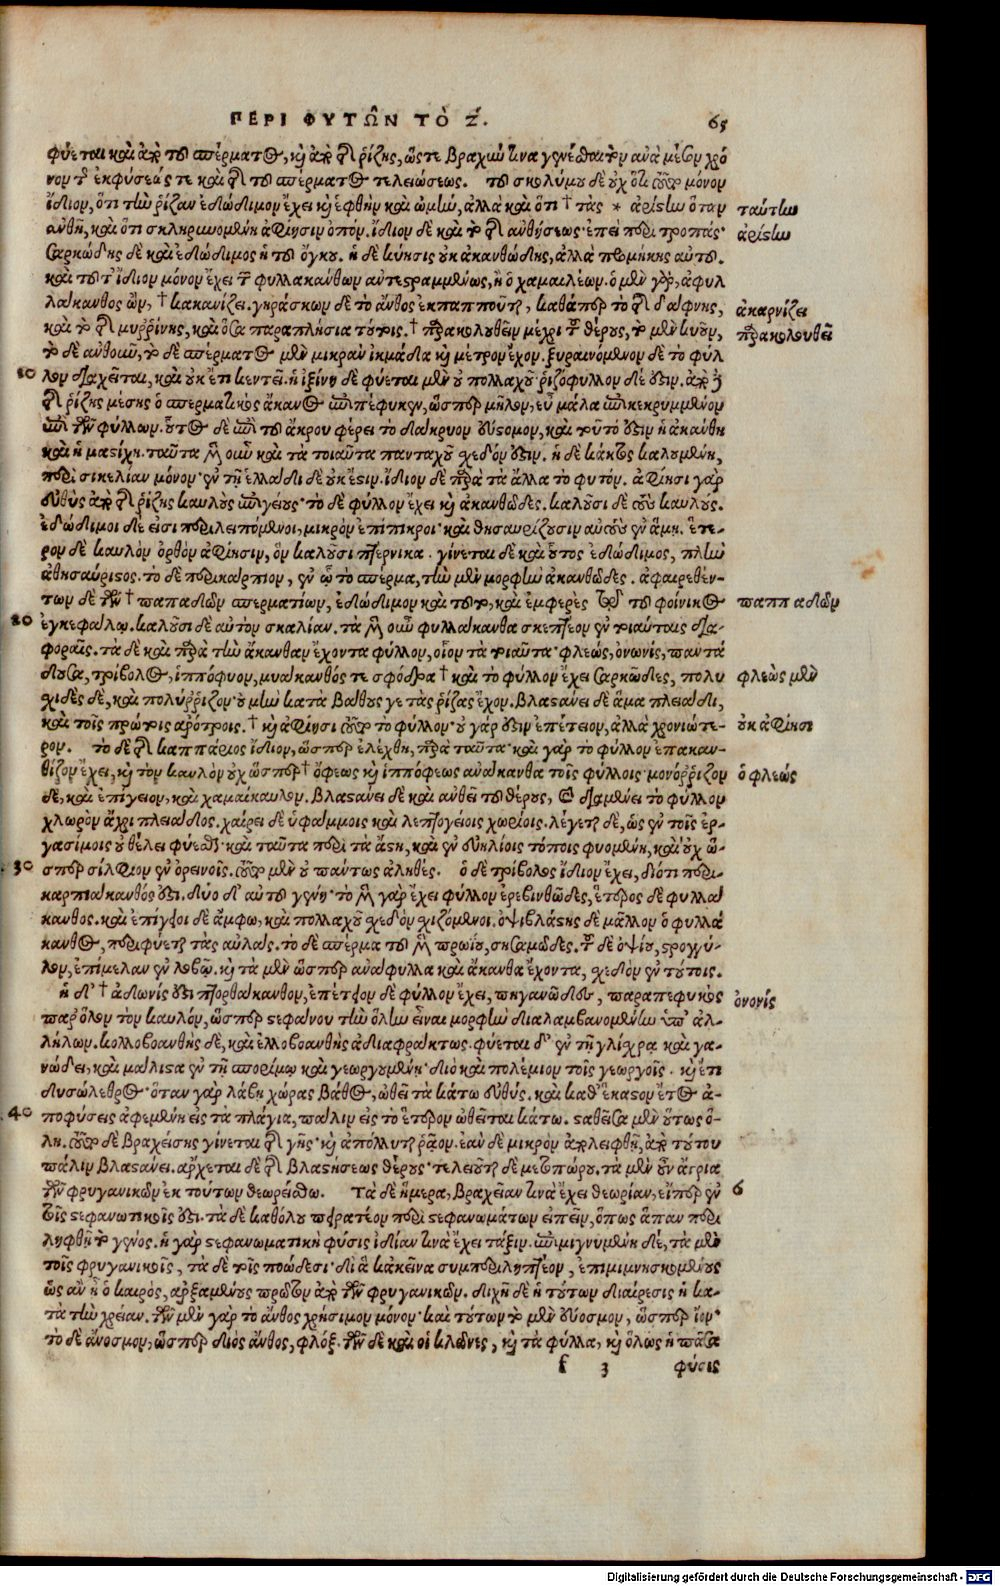 ΠΕΡΙ ΦΥΤΩ͂Ν ΤῸ Ζ. 65
φύεται καὶ ἀπὸ τοῦ σπέρματος, κὶ ἀπὸ τῆς ῥίζης, ὥστε βραχύν τινα γενέσθαι τὸν ἀνὰ μέσον χρό
νον τῆς ἐκφύσεώς τε καὶ τῆς τοῦ σπέρματος τελειώσεως. τοῦ σκολύμου δὲ οὐχ ὅτι τοῦτο μόνον
ἴδιον, ὅτι τὴν ῥίζαν ἐδώδιμον ἔχει κὶ ἑφθὴν καὶ ὠμὴν, ἀλλὰ καὶ ὅτι † τὰς * ἀρίστην ὅταν ταύτην
ἀνθῇ, καὶ ὅτι σκληρυνομένη ἀφίησιν ὀπόν. ἴδιον δὲ καὶ τὸ τῆς ἀνθήσεως· ἐπεὶ περὶ τροπάς· ἀρίστην
σαρκώδης δὲ καὶ ἐδώδιμος ἡ τοῦ ὄγκου. ἡ δὲ κύησις οὐκ ἀκανθώδης, ἀλλὰ προμήκης αὐτοῦ.
καὶ τοῦτ' ἴδιον μόνον ἔχει τῶν φυλλακάνθων ἀντεστραμμένως, ἢ ὁ χαμαιλέων. ὁ μὲν γὰρ, ἀφυλ
λάκανθος ὢν, † κακανίζει. γηράσκων δὲ τὸ ἄνθος ἐκπαπποῦται, καθάπερ τὸ τῆς δάφνης, ἀκαρνίζει
καὶ τὸ τῆς μυρρίνης, καὶ ὅσα παραπλήσια τούτοις. † παρακολουθεῖν μέχρι τοῦ θέρους, τὸ μὲν κυοῦν, παρακολουθεῖ
τὸ δὲ ἀνθοῦν, τὸ δὲ σπέρματος μὲν μικρὰν ἰκμάδα κὶ μέτρον ἔχον. ξηραινόμενον δὲ τὸ φύλ
10 λον διαχεῖται, καὶ οὐκ ἔτι κεντεῖ. ἡ ἰξίνη δὲ φύεται μὲν οὐ πολλαχοῦ· ῥιζόφυλλον δέ ἐστιν. ἀπὸ δὲ
τῆς ῥίζης μέσης ὁ σπερματικὸς ἄκανος ἐπιπέφυκεν, ὥσπερ μῆλον, εὖ μάλα ἐπικεκρυμμένον
ὑπὸ τῶν φύλλων. οὗτος δὲ ἐπὶ τοῦ ἄκρου φέρει τὸ δάκρυον εὔστομον, καὶ τοῦτό ἐστιν ἡ ἀκάνθη
καὶ ἡ μαστίχη. ταῦτα μὲν οὖν καὶ τὰ τοιαῦτα πανταχοῦ σχεδόν ἐστιν. ἡ δὲ κάκτος καλουμένη,
περὶ σικελίαν μόνον· ἐν τῇ ἑλλάδι δὲ οὐκ ἔστιν. ἴδιον δὲ παρὰ τὰ ἄλλα τὸ φυτόν. ἀφίησι γὰρ
εὐθὺς ἀπὸ τῆς ῥίζης καυλοὺς ἐπιγείους· τὸ δὲ φύλλον ἔχει κὶ ἀκανθῶδες. καλοῦσι δὲ τοὺς καυλούς.
ἐδώδιμοι δέ εἰσι περιλεπόμενοι, μικρὸν ἐπίπικροι· καὶ θησαυρίζουσιν αὐτοὺς ἐν ἅλμῃ. ἕτε-
ρον δὲ καυλὸν ὀρθὸν ἀφίησιν, ὃν καλοῦσι πτέρνικα. γίνεται δὲ καὶ οὗτος ἐδώδιμος, πλὴν
ἀθησαύριστος. τὸ δὲ περικάρπιον, ἐν ᾧ τὸ σπέρμα, τὴν μὲν μορφὴν ἀκανθῶδες. ἀφαιρεθέν-
των δὲ τῶν † παπαδῶν σπερματίων, ἐδώδιμον καὶ τοῦτο, καὶ ἐμφερὲς τῷ τοῦ φοίνικος παππαδῶν
20 ἐγκεφάλῳ. καλοῦσι δὲ αὐτὸν σκαλίαν. τὰ μὲν οὖν φυλλάκανθα σκεπτέον ἐν τοιαύταις δια-
φοραῖς. τὰ δὲ καὶ παρὰ τὴν ἄκανθαν ἔχοντα φύλλον, οἷον τὰ τοιαῦτα· φλεώς, ὀνωνὶς, παντά
δουσα, τρίβολος, ἱππόφυον, μυάκανθός τε σφόδρα † καὶ τὸ φύλλον ἔχει σαρκῶδες, πολυ φλεὼς μὲν
χιδὲς δὲ, καὶ πολύρριζον· οὐ μὴν κατὰ βάθους γε τὰς ῥίζας ἔχον. βλαστάνει δὲ ἅμα πλειάδι,
καὶ τοῖς πρώτοις ἀρότροις. † κὶ ἀφίησι τότε τὸ φύλλον· οὐ γάρ ἐστιν ἐπέτειον, ἀλλὰ χρονιώτε- οὐκ ἀφίησι
ρον. τὸ δὲ τῆς καππάριος ἴδιον, ὥσπερ ἐλέχθη, παρὰ ταῦτα· καὶ γὰρ τὸ φύλλον ἐπακαν-
θίζον ἔχει, κὶ τὸν καυλὸν οὐχ ὥσπερ † ὄφεως κὶ ἱππόφεως ἀνάκανθα τοῖς φύλλοις· μονόρριζον ὁ φλεώς
δὲ, καὶ ἐπίγειον, καὶ χαμαίκαυλον. βλαστάνει δὲ καὶ ἀνθεῖ τοῦ θέρους, καὶ διαμένει τὸ φύλλον
χλωρὸν ἄχρι πλειάδος. χαίρει δὲ ὑφάμμοις καὶ λεπτογείοις χωρίοις. λέγεται δὲ, ὡς ἐν τοῖς ἐρ-
γασίμοις οὐ θέλει φύεσθαι· καὶ ταῦτα περὶ τὰ ἄστη, καὶ ἐν εὐηλίοις τόποις φυομένη, καὶ οὐχ ὥ-
30 σπερ σίλφιον ἐν ὀρεινοῖς. τοῦτο μὲν οὐ πάντως ἀληθές. ὁ δὲ τρίβολος ἴδιον ἔχει, διότι περι-
καρπάκανθός ἐστι. δύο δ' αὐτοῦ γένη· τὸ μὲν γὰρ ἔχει φύλλον ἐρεβινθῶδες, ἕτερος δὲ φυλλά
κανθος. καὶ ἐπίγειοι δὲ ἄμφω, καὶ πολλαχοῦ σχεδὸν σχιζόμενοι. ὀψιβλάστης δὲ μᾶλλον ὁ φυλλά
κανθος, περιφύεται τὰς αὐλάς. τὸ δὲ σπέρμα τοῦ μὲν πρωΐου, σησαμῶδες. τοῦ δὲ ὀψίου, στρογγύ-
λον, ἐπίμελαν ἐν λοβῷ. κὶ τὰ μὲν ὥσπερ ἀνάφυλλα καὶ ἄκανθα ἔχοντα, σχεδὸν ἐν τούτοις.
ἡ δ' † ἀδωνίς ἐστι πτορθάκανθον, ἐπέτειον δὲ φύλλον ἔχει, πηγανῶδες, παραπεφυκὸς ὀνονίς
παρ' ὅλον τὸν καυλόν, ὥσπερ στεφάνου τὴν ὅλην εἶναι μορφὴν διαλαμβανομένην ὑπ' ἀλ-
λήλων. κολλοβοανθὴς δὲ, καὶ ἐλλοβοανθὴς ἀδιαφράκτως. φύεται δ' ἐν τῇ γλίχρᾳ καὶ γα-
νώδει, καὶ μάλιστα ἐν τῇ σπορίμῳ καὶ γεωργουμένῃ· διὸ καὶ πολέμιον τοῖς γεωργοῖς. κὶ ἔτι
δυσώλεθρος· ὅταν γὰρ λάβῃ χώρας βάθος, ὠθεῖ τὰ κάτω εὐθύς. καὶ καθ' ἕκαστον ἔτος ἀ-
40 ποφύσεις ἀφεμένη εἰς τὰ πλάγια, πάλιν εἰς τὸ ἕτερον ὠθεῖται κάτω. σταθεῖσα μὲν οὕτως ὅ-
λη. τοῦτο δὲ βραχείσης γίνεται τῆς γῆς· κὶ ἀπόλλυται ῥᾷον. ἐὰν δὲ μικρὸν ἀπολειφθῇ, ἀπὸ τούτου
πάλιν βλαστάνει. ἄρχεται δὲ τῆς βλαστήσεως θέρους· τελευτᾷ δὲ μετοπώρου. τὰ μὲν οὖν ἄγρια
τῶν φρυγανικῶν ἐκ τούτων θεωρείσθω. Τὰ δὲ ἥμερα, βραχεῖάν τινα ἔχει θεωρίαν, εἴπερ ἐν 6
τοῖς στεφανωτικοῖς ἐστι. τὰ δὲ καθόλου πειρατέον περὶ στεφανωμάτων εἰπεῖν, ὅπως ἅπαν περι
ληφθῇ τὸ γένος. ἡ γὰρ στεφανωματικὴ φύσις ἰδίαν τινὰ ἔχει τάξιν. ἐπιμιγνυμένη δέ, τὰ μὲν
τοῖς φρυγανικοῖς, τὰ δὲ τοῖς ποώδεσι· διὸ κἀκεῖνα συμπεριληπτέον, ἐπιμιμνησκομένους
ὡς ἂν ᾖ ὁ καιρὸς, ἀρξαμένους πρῶτον ἀπὸ τῶν φρυγανικῶν. διχῆ δὲ ἡ τούτων διαίρεσις ἡ κα-
τὰ τὴν χρείαν. τῶν μὲν γὰρ τὸ ἄνθος χρήσιμον μόνον· καὶ τούτων τὸ μὲν εὔοσμον, ὥσπερ ἴον·
τὸ δὲ ἄνοσμον, ὥσπερ διὸς ἄνθος, φλόξ. τῶν δὲ καὶ οἱ κλῶνες, κὶ τὰ φύλλα, κὶ ὅλως ἡ πᾶσα
f 3 φύσις
Digitalisierung gefördert durch die Deutsche Forschungsgemeinschaft - DFG